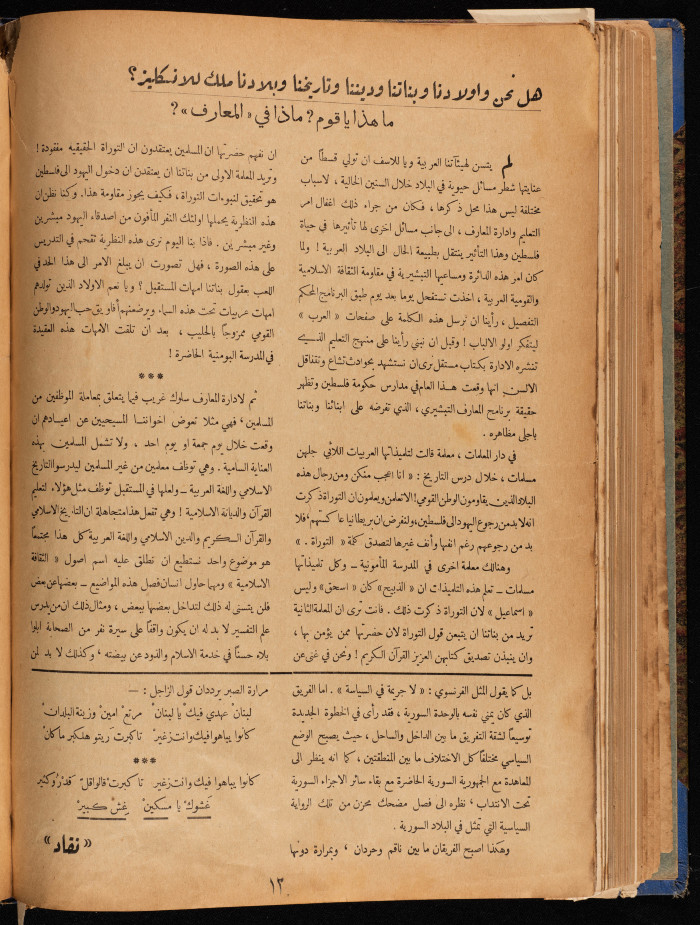 هل نحن واولادنا وبناتنا وديننا وتاريخنا وبلادنا ملك للانكليز؟
ما هذا يا قوم؟ ماذا في «المعارف»؟
لم يتسن لهيئاتنا العربية ويا للاسف ان تولي قسطاً من
عنايتها شطر مسائل حيوية في البلاد خلال السنين الحالية ، لاسباب
مختلفة ليس هذا محل ذكرها ، فكان من جراء ذلك اغفال امر
التعليم وادارة المعارف ، الى جانب مسائل اخرى لها تأثيرها في حياة
فلسطين وهذا التأثير ينتقل بطبيعة الحال الى البلاد العربية ! ولما
كان امر هذه الدائرة ومساعيها التبشيرية في مقاومة الثقافة الاسلامية
والقومية العربية ، اخذت تستفحل يوما بعد يوم طبق البرنامج المحكم
التفصيل ، رأينا ان نرسل هذه الكلمة على صفحات « العرب »
ليتفكر اولو الالباب ! وقبل ان نبني رأينا على منهج التعليم الذي
تنشره الادارة بكتاب مستقل نرى ان نستشهد بحوادث تشاع وتتناقل
الالسن انها وقعت هذا العام في مدارس حكومة فلسطين وتظهر
حقيقة برنامج المعارف التبشيري ، الذي تفرضه على ابنائنا وبناتنا
باجلى مظاهره .
في دار المعلمات ، معلمة قالت لتلميذاتها العربيات اللاتي جلهن
مسلمات ، خلال درس التاريخ : « انا اعجب منكن ومن رجال هذه
البلاد الذين يقاومون الوطن القومي ! الا تعلمن ويعلمون ان التوراة ذكرت
انه لا بد من رجوع اليهود الى فلسطين ، ولنفرض ان بريطانيا عاكستهم ، فلا
بد من رجوعهم رغم انفها وأنف غيرها لتصدق كلمة « التوراة . »
وهنالك معلمة اخرى في المدرسة المأمونية – وكل تلميذاتها
مسلمات – تعلم هذه التلميذات ان « الذبيح » كان « اسحق » وليس
« اسماعيل » لان التوراة ذكرت ذلك . فانت ترى ان المعلمة الثانية
تريد من بناتنا ان يتبعن قول التوراة لان حضرتها ممن يؤمن بها ،
وان ينبذن تصديق كتابهن العزيز القرآن الكريم ! ونحن في غنى عن
ان نفهم حضرتها ان المسلمين يعتقدون ان التوراة الحقيقيه مفقودة !
وتريد المعلمة الاولى من بناتنا ان يعتقدن ان دخول اليهود الى فلسطين
هو تحقيق لنبوءات التوراة ، فكيف يجوز مقاومة هذا. وكنا نظن ان
هذه النظرية يحملها اولئك النفر المأفون من اصدقاء اليهود مبشرين
وغير مبشرين . فاذا بنا اليوم نرى هذه النظرية تقحم في التدريس
على هذه الصورة ، فهل تصورت ان يبلغ الامر الى هذا الحد في
اللعب بعقول بناتنا امهات المستقبل ؟ ويا نعم الاولاد الذين تولدهم
امهات عربيات تحت هذه السماء وبرضعنهم أفاويق حب اليهود والوطن
القومي ممزوجاً بالحليب ، بعد ان تلقت الامهات هذه العقيدة
في المدرسة اليومنية الحاضرة !
***
ثم لادارة المعارف سلوك غريب فيما يتعلق بمعاملة الموظفين من
المسلمين ، فهي مثلا تعوض اخواننا المسيحيين عن اعيادهم ان
وقعت خلال يوم جمعة او يوم احد ، ولا تشمل المسلمين بهذه
العناية السامية . وهي توظف معلمين من غير المسلمين ليدرسوا التاريخ
الاسلامي واللغة العربية – ولعلها في المستقبل توظف مثل هؤلاء لتعليم
القرآن والديانة الاسلامية ! وهي تفعل هذا متجاهلة ان التاريخ الاسلامي
والقرآن الكريم والدين الاسلامي واللغة العربية كل هذا مجتمعاً
هو موضوع واحد نستطيع ان نطلق عليه اسم اصول « الثقافة
الاسلامية » ومهما حاول انسان فصل هذه المواضيع – بعضها عن بعض
فلن يتسنى له ذلك لتداخل بعضها ببعض ، ومثال ذلك ان من يدرس
علم التفسير لا بد له ان يكون واقفاً على سيرة نفر من الصحابة ابلوا
بلاء حسناً في خدمة الاسلام والذود عن بيضته ، وكذلك لا بد لمن
بل كما يقول المثل الفرنسوي : « لا جريمة في السياسة » . اما الفريق
الذي كان يمني نفسه بالوحدة السورية ، فقد رأى في الخطوة الجديدة
توسيعاً لشقة التفريق ما بين الداخل والساحل ، حيث يصبح الوضع
السياسي مختلفاً كل الاختلاف ما بين المنطقتين ، كما انه ينظر الى
المعاهدة مع الجمهورية السورية الحاضرة مع بقاء سائر الاجزاء السورية
تحت الانتداب ، نظره الى فصل مضحك محزن من تلك الرواية
السياسية التي تمثل في البلاد السورية .
وهكذا اصبح الفريقان ما بين ناقم وحردان ، وبمرارة دونها
مرارة الصبر يرددان قول الزاجل : —
لبنان عهدي فيك يا لبنان مرتع امين وزينة البلدان
كانوا يباهوا فيك وانت زغير تا كبرت ريتو هلكبر ما كان
***
كانوا يباهوا فيك وانت زغير تا كبرت قالوا قل قدرو كثير
غشوك يا مسكين غش كبير
« نقاد »
١٣